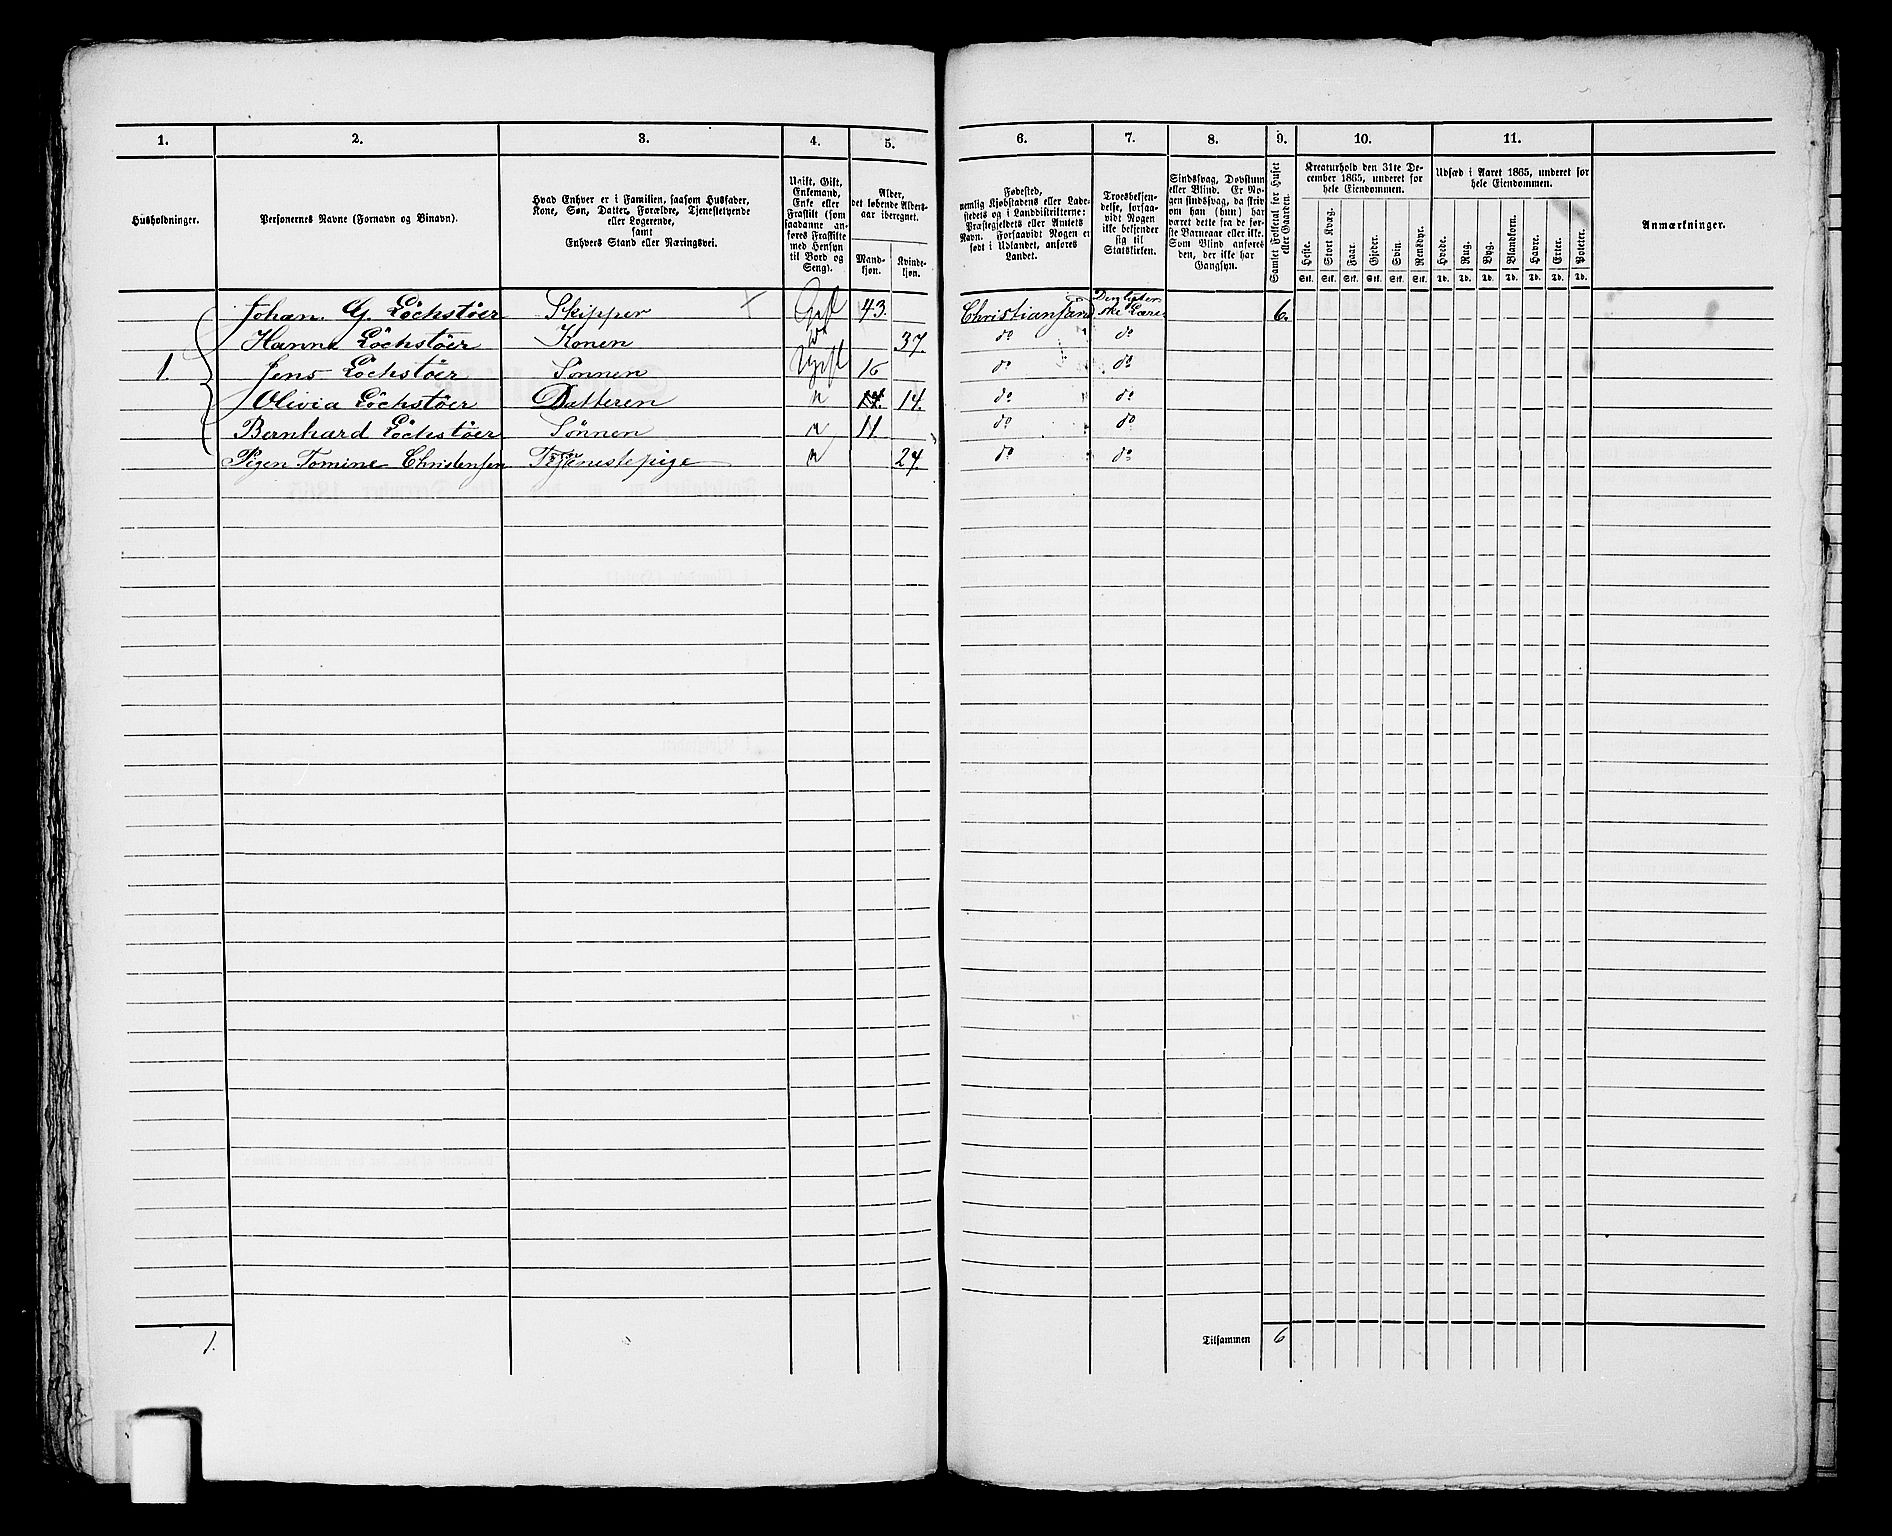 1. 2. 3. 4. 5. 6. 7. 8. 9. 10. 11.
Husholdninger.
Personernes Navne (Fornavn og Binavn).
Hvad Enhver er i Familien, saasom Husfader,
Kone, Søn, Datter, Forældre, Tjenestetyende
eller Logerende,
samt
Enhvers Stand eller Næringsvei.
Ugift, Gift,
Enkemand,
Enke eller
Fraskilt (som
saadanne an-
føres Fraskilte
med Hensyn
til Bord og
Seng).
Alder,
det løbende Alders-
aar iberegnet.
Mand-
kjøn.
Kvinde-
kjøn.
Fødested,
nemlig Kjøbstadens eller Lade-
stedets og i Landdistrikterne:
Præstegjeldets eller Amtets
Navn. Forsaavidt Nogen er
født i Udlandet, anføres
Landet.
Troesbekjen-
delse, forsaa-
vidt Nogen
ikke bekjender
sig til
Statskirken.
Sindssvag, Døvstum
eller Blind. Er No-
gen sindssvag, da skrives
om han (hun) har
været dette fra de før-
ste Barneaar eller ikke.
Som Blind anføres
den, der ikke har
Gangsyn.
Samlet Folketal for Huset
eller Gaarden.
Kreaturhold den 31te De-
cember 1865, underet for
hele Eiendommen.
Heste. Stort Kvæg. Faar. Gjeder. Svin. Rensdyr.
Stk. Stk. Stk. Stk. Stk. Stk.
Udsæd i Aaret 1865, underet for
hele Eiendommen.
Hvede. Rug. Byg. Blandkorn. Havre. Erter. Poteter.
Td. Td. Td. Td. Td. Td. Td.
Anmærkninger.
Johan G. Löchstöer Skipper × Gift 43. Christiansand Den luther- 6.
ske Lære
Hanne Löchstöer Konen do 37. do do
1. Jens Löchstöer Sønnen Ugift 16 do do
Olivia Löchstöer Datteren " 14. 14. do do
Bernhard Löchstöer Sønnen " 11 do do
Pigen Tomine Christensen Tjenestepige " 24. do do
1. Tilsammen 6